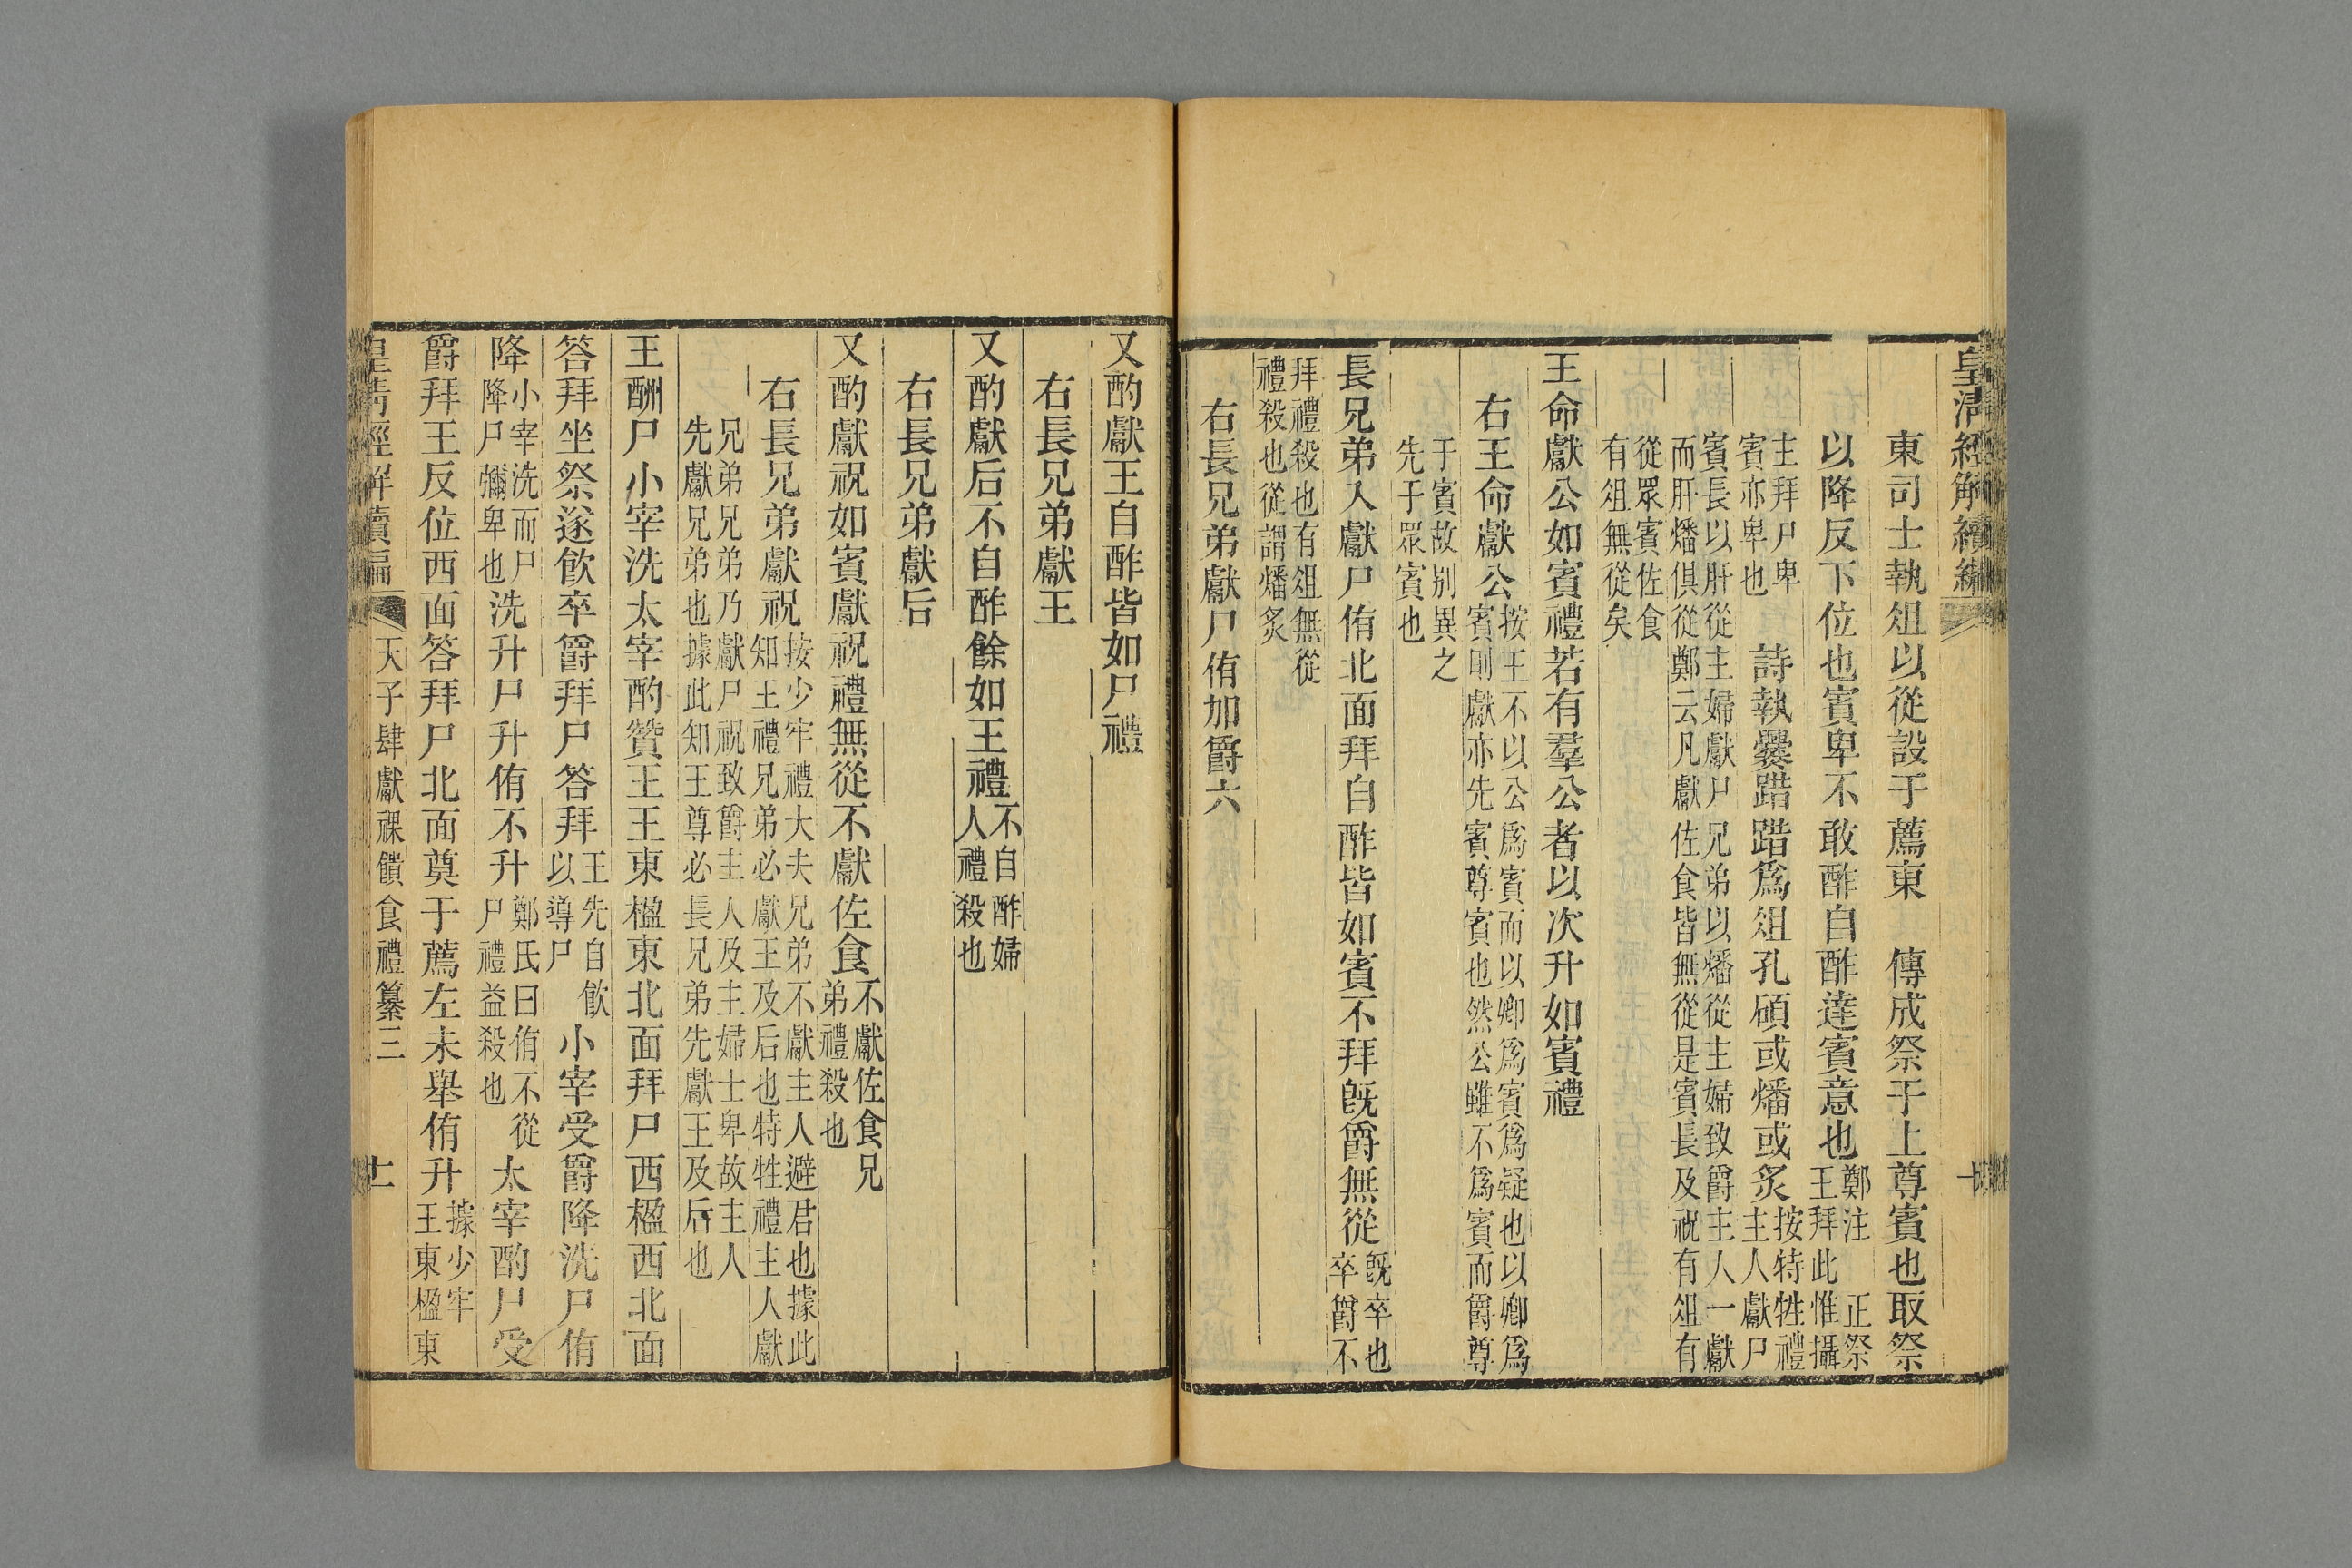 皇清經解續編
十
東司士執俎以從設于薦東　傳成祭于上尊賓也取祭
以降反下位也賓卑不敢酢自酢達賓意也
鄭注　正祭
王拜此惟攝
主拜尸卑
賓亦卑也
詩執爨踖踖爲俎孔碩或燔或炙
按特牲禮
主人獻尸
賓長以肝從主婦獻尸兄弟以燔從主婦致爵主人一獻
而肝燔俱從鄭云凡獻佐食皆無從是賓長及祝有俎有
從眾賓佐食
有俎無從矣
王命獻公如賓禮若有羣公者以次升如賓禮
右王命獻公
按王不以公爲賓而以卿爲賓爲疑也以卿爲
賓則獻亦先賓尊賓也然公雖不爲賓而爵尊
于賓故別異之
先于眾賓也
長兄弟入獻尸侑北面拜自酢皆如賓不拜既爵無從
既卒也
卒爵不
拜禮殺也有俎無從
禮殺也從謂燔炙
右長兄弟獻尸侑加爵六
又酌獻王自酢皆如尸禮
右長兄弟獻王
又酌獻后不自酢餘如王禮
不自酢婦
人禮殺也
右長兄弟獻后
又酌獻祝如賓獻祝禮無從不獻佐食
不獻佐食兄
弟禮殺也
右長兄弟獻祝
按少牢禮大夫兄弟不獻主人避君也據此
知王禮兄弟必獻王及后也特牲禮主人獻
兄弟兄弟乃獻尸祝致爵主人及主婦士卑故主人
先獻兄弟也據此知王尊必長兄弟先獻王及后也
王酬尸小宰洗太宰酌贊王王東楹東北面拜尸西楹西北面
答拜坐祭遂飮卒爵拜尸答拜
王先自飮
以導尸
小宰受爵降洗尸侑
降
小宰洗而尸
降尸彌卑也
洗升尸升侑不升
鄭氏曰侑不從
尸禮益殺也
太宰酌尸受
爵拜王反位西面答拜尸北面奠于薦左未舉侑升
據少牢
王東楹東
皇清經解續編
天子肆獻祼饋食禮纂三
十一